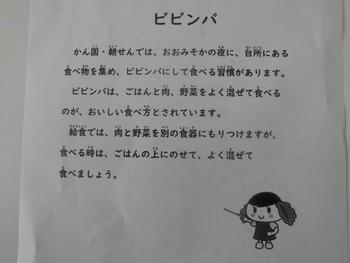 ビビンバ
かん国・朝せんでは、おおみそかの夜に、台所にある
食べ物を集め、ビビンバにして食べる習慣があります。
ビビンバは、ごはんと肉、野菜をよく混ぜて食べる
のが、おいしい食べ方とされています。
給食では、肉と野菜を別の食器にもりつけますが、
食べる時は、ごはんの上にのせて、よく混ぜて
食べましょう。